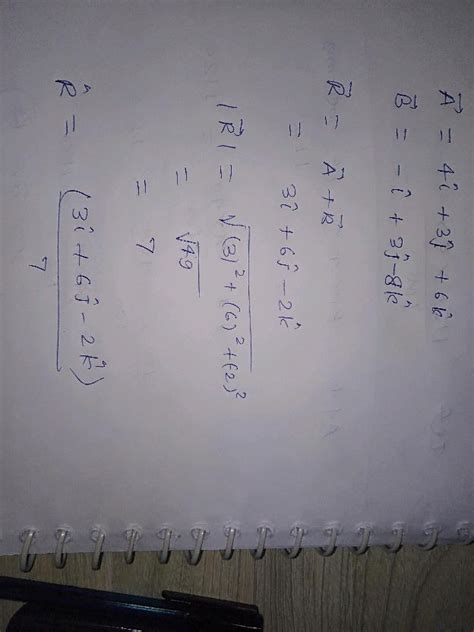 A⃗ = 4î + 3ĵ + 6k̂
B⃗ = -î + 3ĵ - 8k̂
R⃗ = A⃗ + B⃗
= 3î + 6ĵ - 2k̂
|R⃗| = √(3)² + (6)² + (2)²
= √49
= 7
R̂ = (3î + 6ĵ - 2k̂)
7